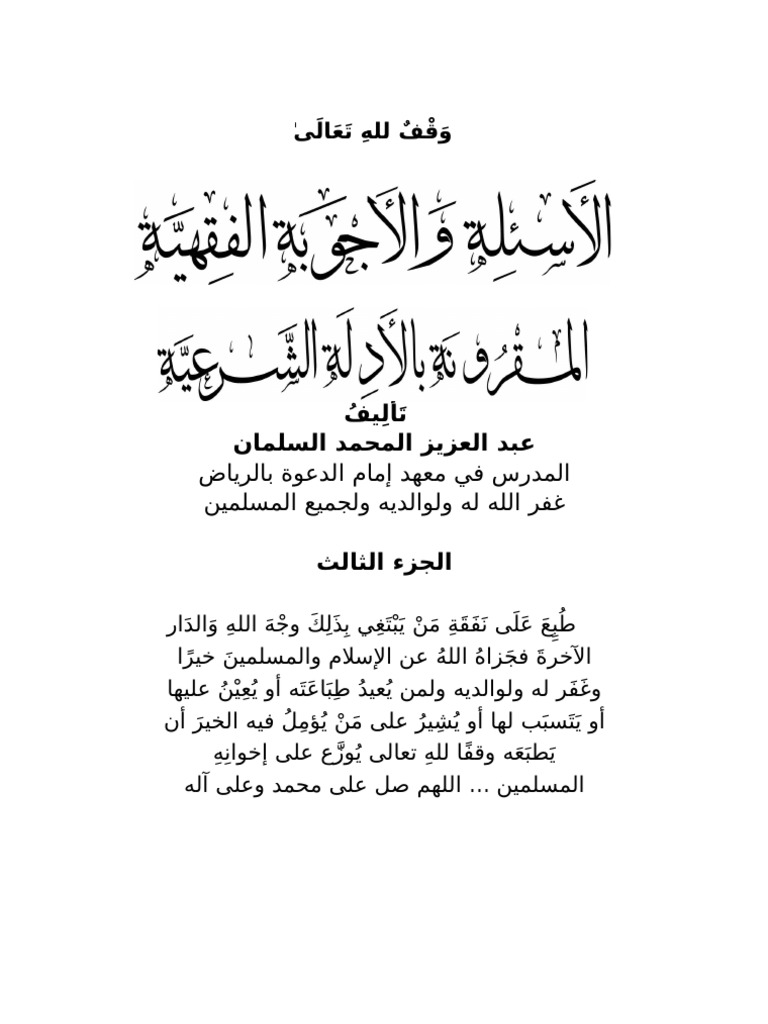 وَقْفٌ للهِ تَعَالَىٰ
الأَسْئِلَةُ وَالأَجْوِبَةُ الفِقْهِيَّةُ
المَقْرُونَةُ بِالأَدِلَةِ الشَّرْعِيَّةِ
تَألِيفُ
عبد العزيز المحمد السلمان
المدرس في معهد إمام الدعوة بالرياض
غفر الله له ولوالديه ولجميع المسلمين
الجزء الثالث
طُبِعَ عَلَى نَفَقَةِ مَنْ يَبْتَغِي بِذَلِكَ وجْهَ اللهِ وَالدَار
الآخرةَ فجَزاهُ اللهُ عن الإسلام والمسلمينَ خيرًا
وغَفَر له ولوالديه ولمن يُعيدُ طِبَاعَتَه أو يُعِيْنُ عليها
أو يَتَسبَب لها أو يُشِيرُ على مَنْ يُؤمِلُ فيه الخيرَ أن
يَطبَعَه وقفًا للهِ تعالى يُوزَّع على إخوانِهِ
المسلمين ... اللهم صل على محمد وعلى آله